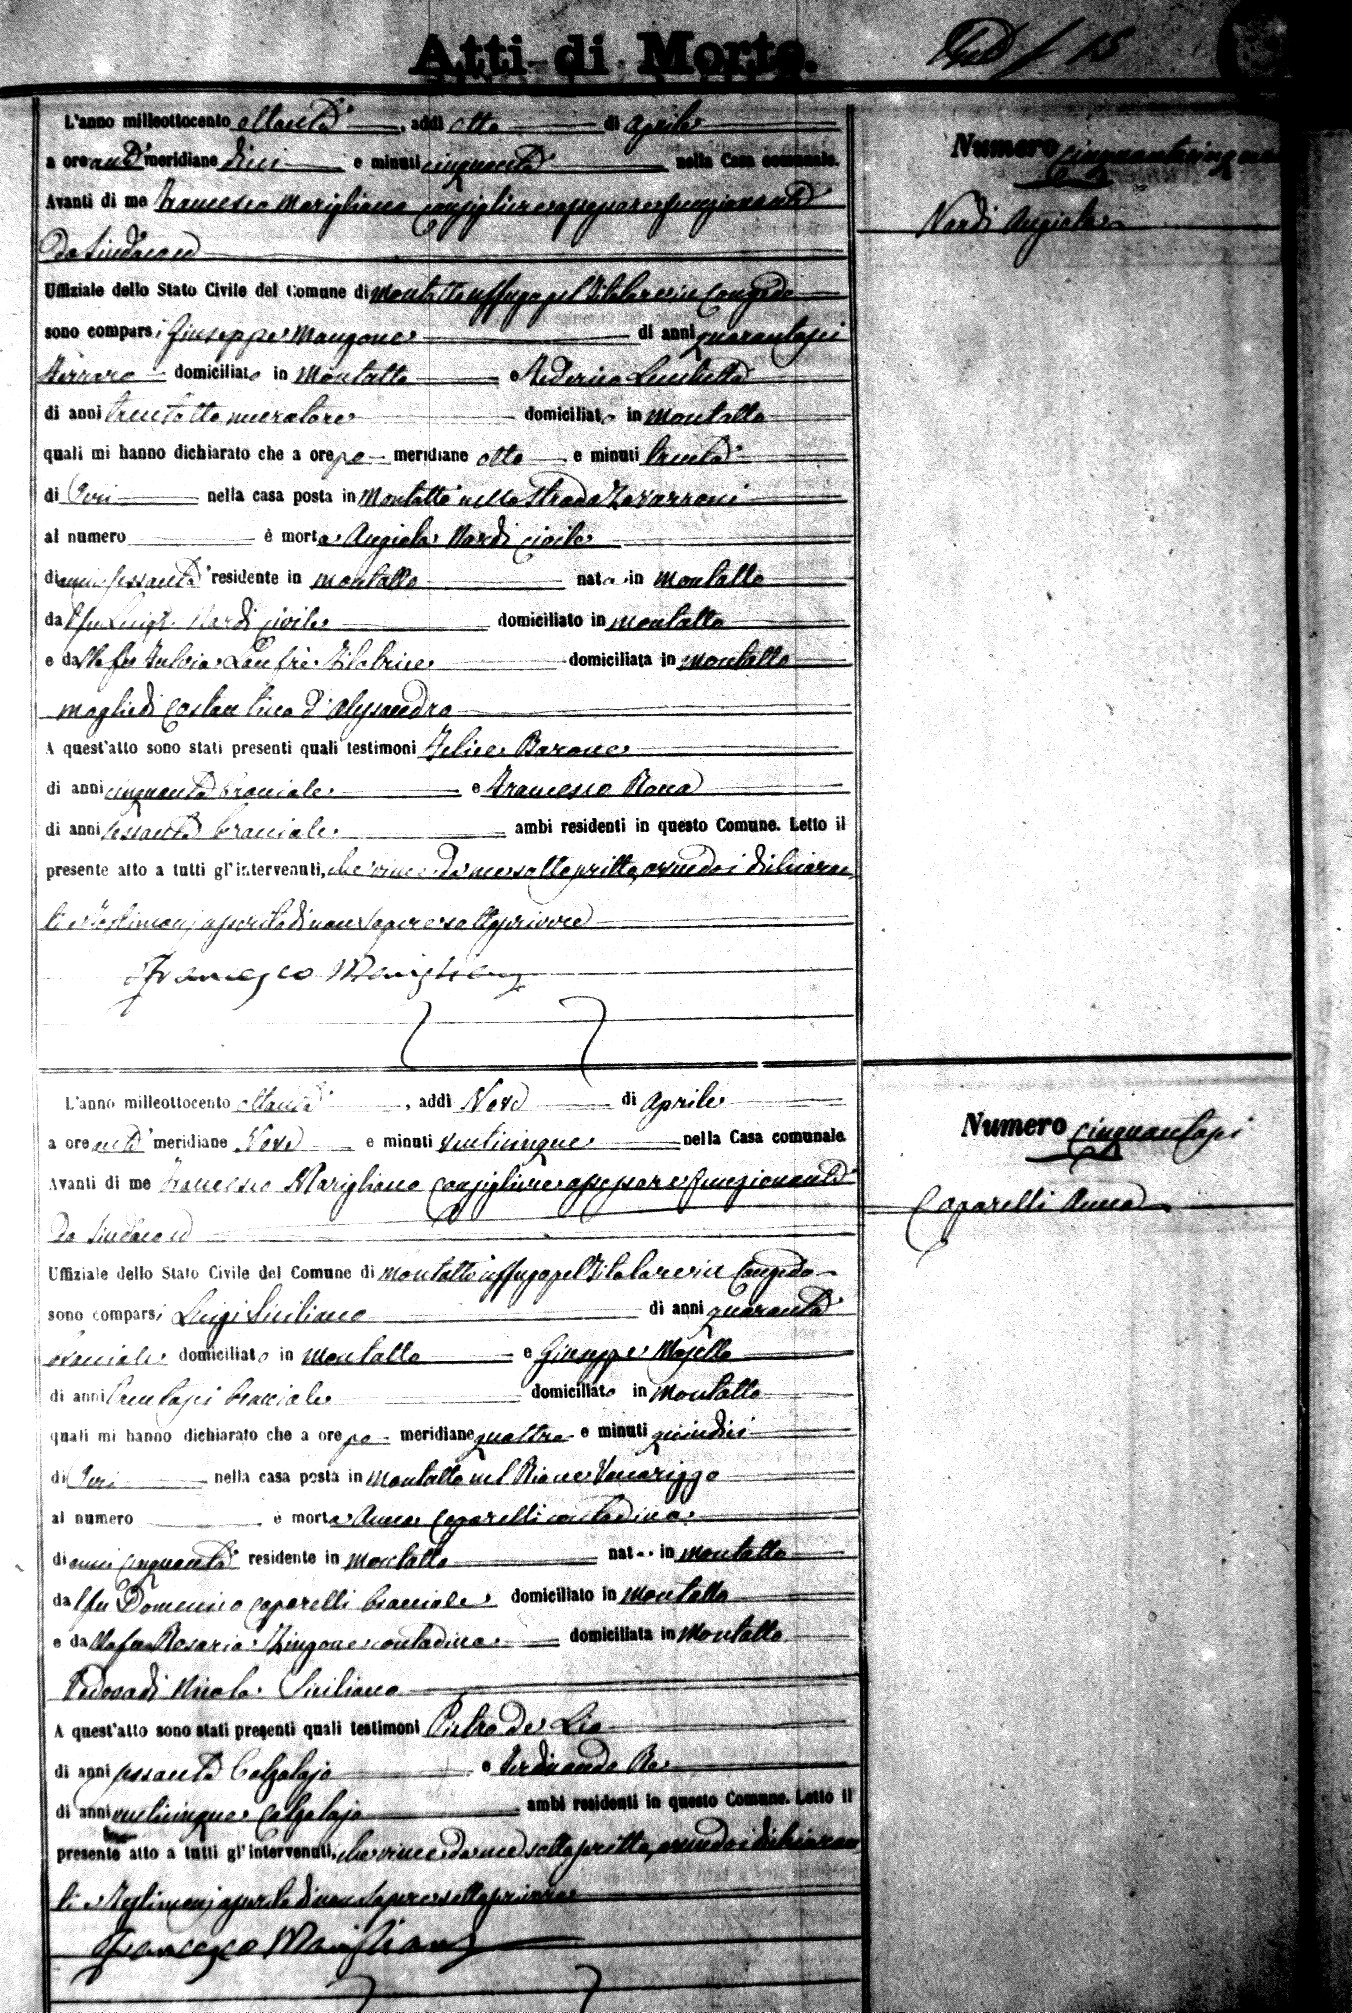 Atti di Morte.
15
L'anno milleottocento ottanta, addì otto di Aprile
a ore anti meridiane dieci e minuti cinquanta nella Casa comunale.
Avanti di me Francesco Marigliano Consigliere assessore funzionante
Da Sindaco ed
Uffiziale dello Stato Civile del Comune di Montalto Uffugo pel Titolare in Congedo
sono comparsi Giuseppe Mangone di anni quarantasei
Ferraro domiciliato in Montalto e Federico Lucchetta
di anni trentotto muratore domiciliato in Montalto
quali mi hanno dichiarato che a ore po meridiane otto e minuti trenta
di Ieri nella casa posta in Montalto nella Strada
al numero è morta Angiola Nardi civile
di anni sessanta residente in Montalto nata in Montalto
dal fu Luigi Nardi civile domiciliato in Montalto
e dalla fu Fulvia filatrice domiciliata in Montalto
moglie di Costantino d'Alessandro
A quest'atto sono stati presenti quali testimoni Felice Barone
di anni cinquanta bracciale e Francesco Rona
di anni sessanta bracciale ambi residenti in questo Comune. Letto il
presente atto a tutti gl'intervenuti, che viene da me sottoscritto, avendo i dichiaran
ti e testimonj asserito di non sapere sottoscrivere
Francesco Marigliano
Numero cinquantacinque
Nardi Angiola
L'anno milleottocento ottanta, addì Nove di Aprile
a ore anti meridiane Nove e minuti venticinque nella Casa comunale.
Avanti di me Francesco Marigliano Consigliere assessore funzionante
Da Sindaco ed
Uffiziale dello Stato Civile del Comune di Montalto Uffugo pel Titolare in Congedo
sono comparsi Luigi Siciliano di anni quaranta
bracciale domiciliato in Montalto e Giuseppe Mosello
di anni trentasei bracciale domiciliato in Montalto
quali mi hanno dichiarato che a ore po meridiane quattro e minuti quindici
di Ieri nella casa posta in Montalto nel Rione
al numero è morta Anna Caparelli contadina
di anni cinquanta residente in Montalto nata in Montalto
dal fu Domenico Caparelli bracciale domiciliato in Montalto
e dalla fu Rosaria Zingone contadina domiciliata in Montalto
Vedova di Nicola Siciliano
A quest'atto sono stati presenti quali testimoni Pietro de Lio
di anni sessanta Calzolajo e Ferdinando Re
di anni venticinque Calzolajo ambi residenti in questo Comune. Letto il
presente atto a tutti gl'intervenuti, che viene da me sottoscritto, avendo i dichiaran
ti e Testimonj asserito di non sapere sottoscrivere
Francesco Marigliano
Numero cinquantasei
Caparelli Anna